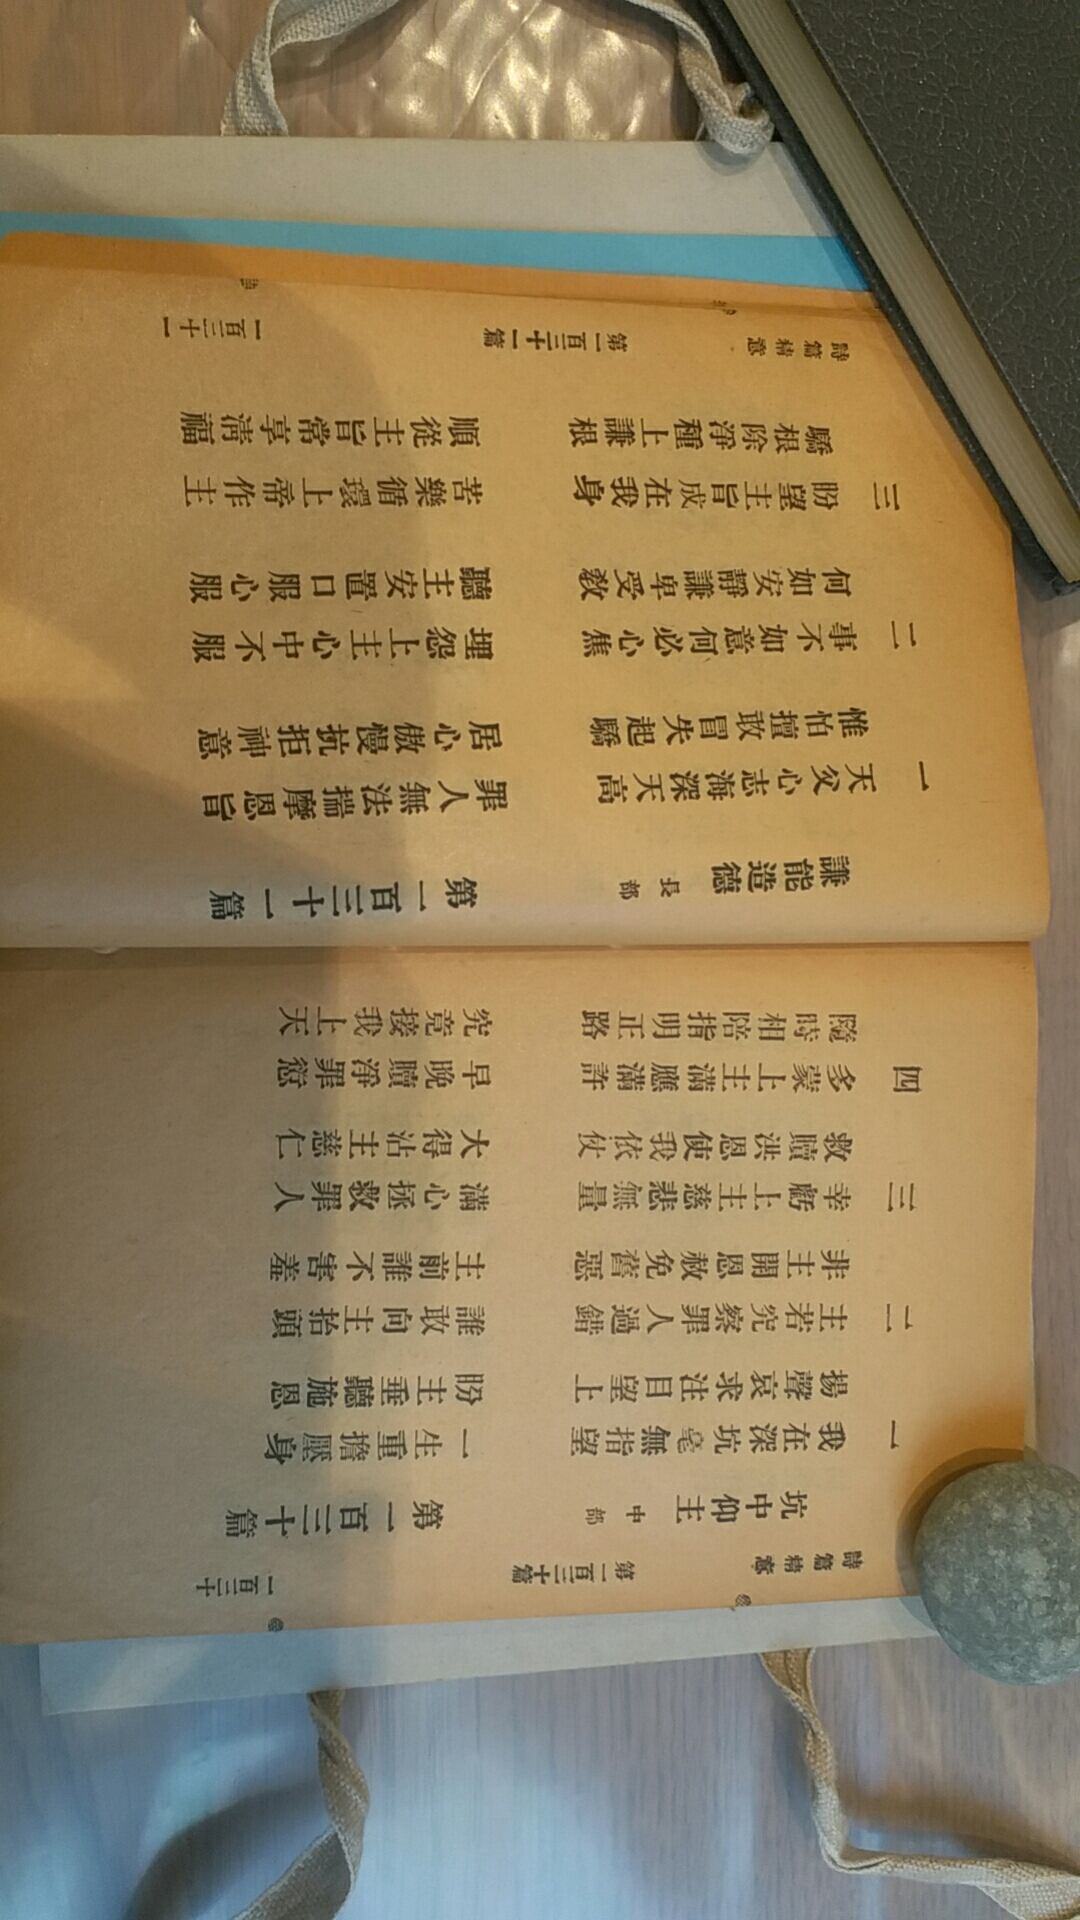 詩篇精意 第一百三十篇 一百三十
坑中仰主 中部 第一百三十篇
一 我在深坑毫無指望 一生重擔壓身
揚聲哀求注目望上 盼主垂聽施恩
二 主若究察罪人過錯 誰敢向主抬頭
非主開恩赦免舊惡 主前誰不害羞
三 幸虧上主慈悲無量 滿心拯救罪人
救贖洪恩使我依仗 大得沾主慈仁
四 多蒙上主滿應滿許 早晚贖淨罪愆
隨時相陪指明正路 究竟接我上天
謙能造德 長部 第一百三十一篇
一 天父心志海深天高 罪人無法揣摩恩旨
惟怕擅敢冒失起驕 居心傲慢抗拒神意
二 事不如意何必心焦 埋怨上主心中不服
何如安靜謙卑受教 聽主安置口服心服
三 盼望主旨成在我身 苦樂循環上帝作主
驕根除淨種上謙根 順從主旨常享清福
詩篇精意 第一百三十一篇 一百三十一